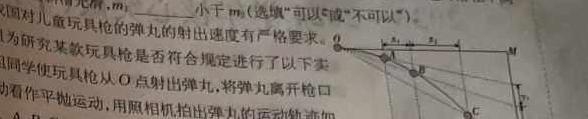 m₁ 小于 m₂(选填“可以”或“不可以”)。
国对儿童玩具枪的弹丸的射出速度有严格要求。
为研究某款玩具枪是否符合规定进行了以下实
同学使玩具枪从O点射出弹丸,将弹丸离开枪口
动看作平抛运动,用照相机拍出弹丸的运动轨迹如
A B
O x₁ x₂ M
A
B
C